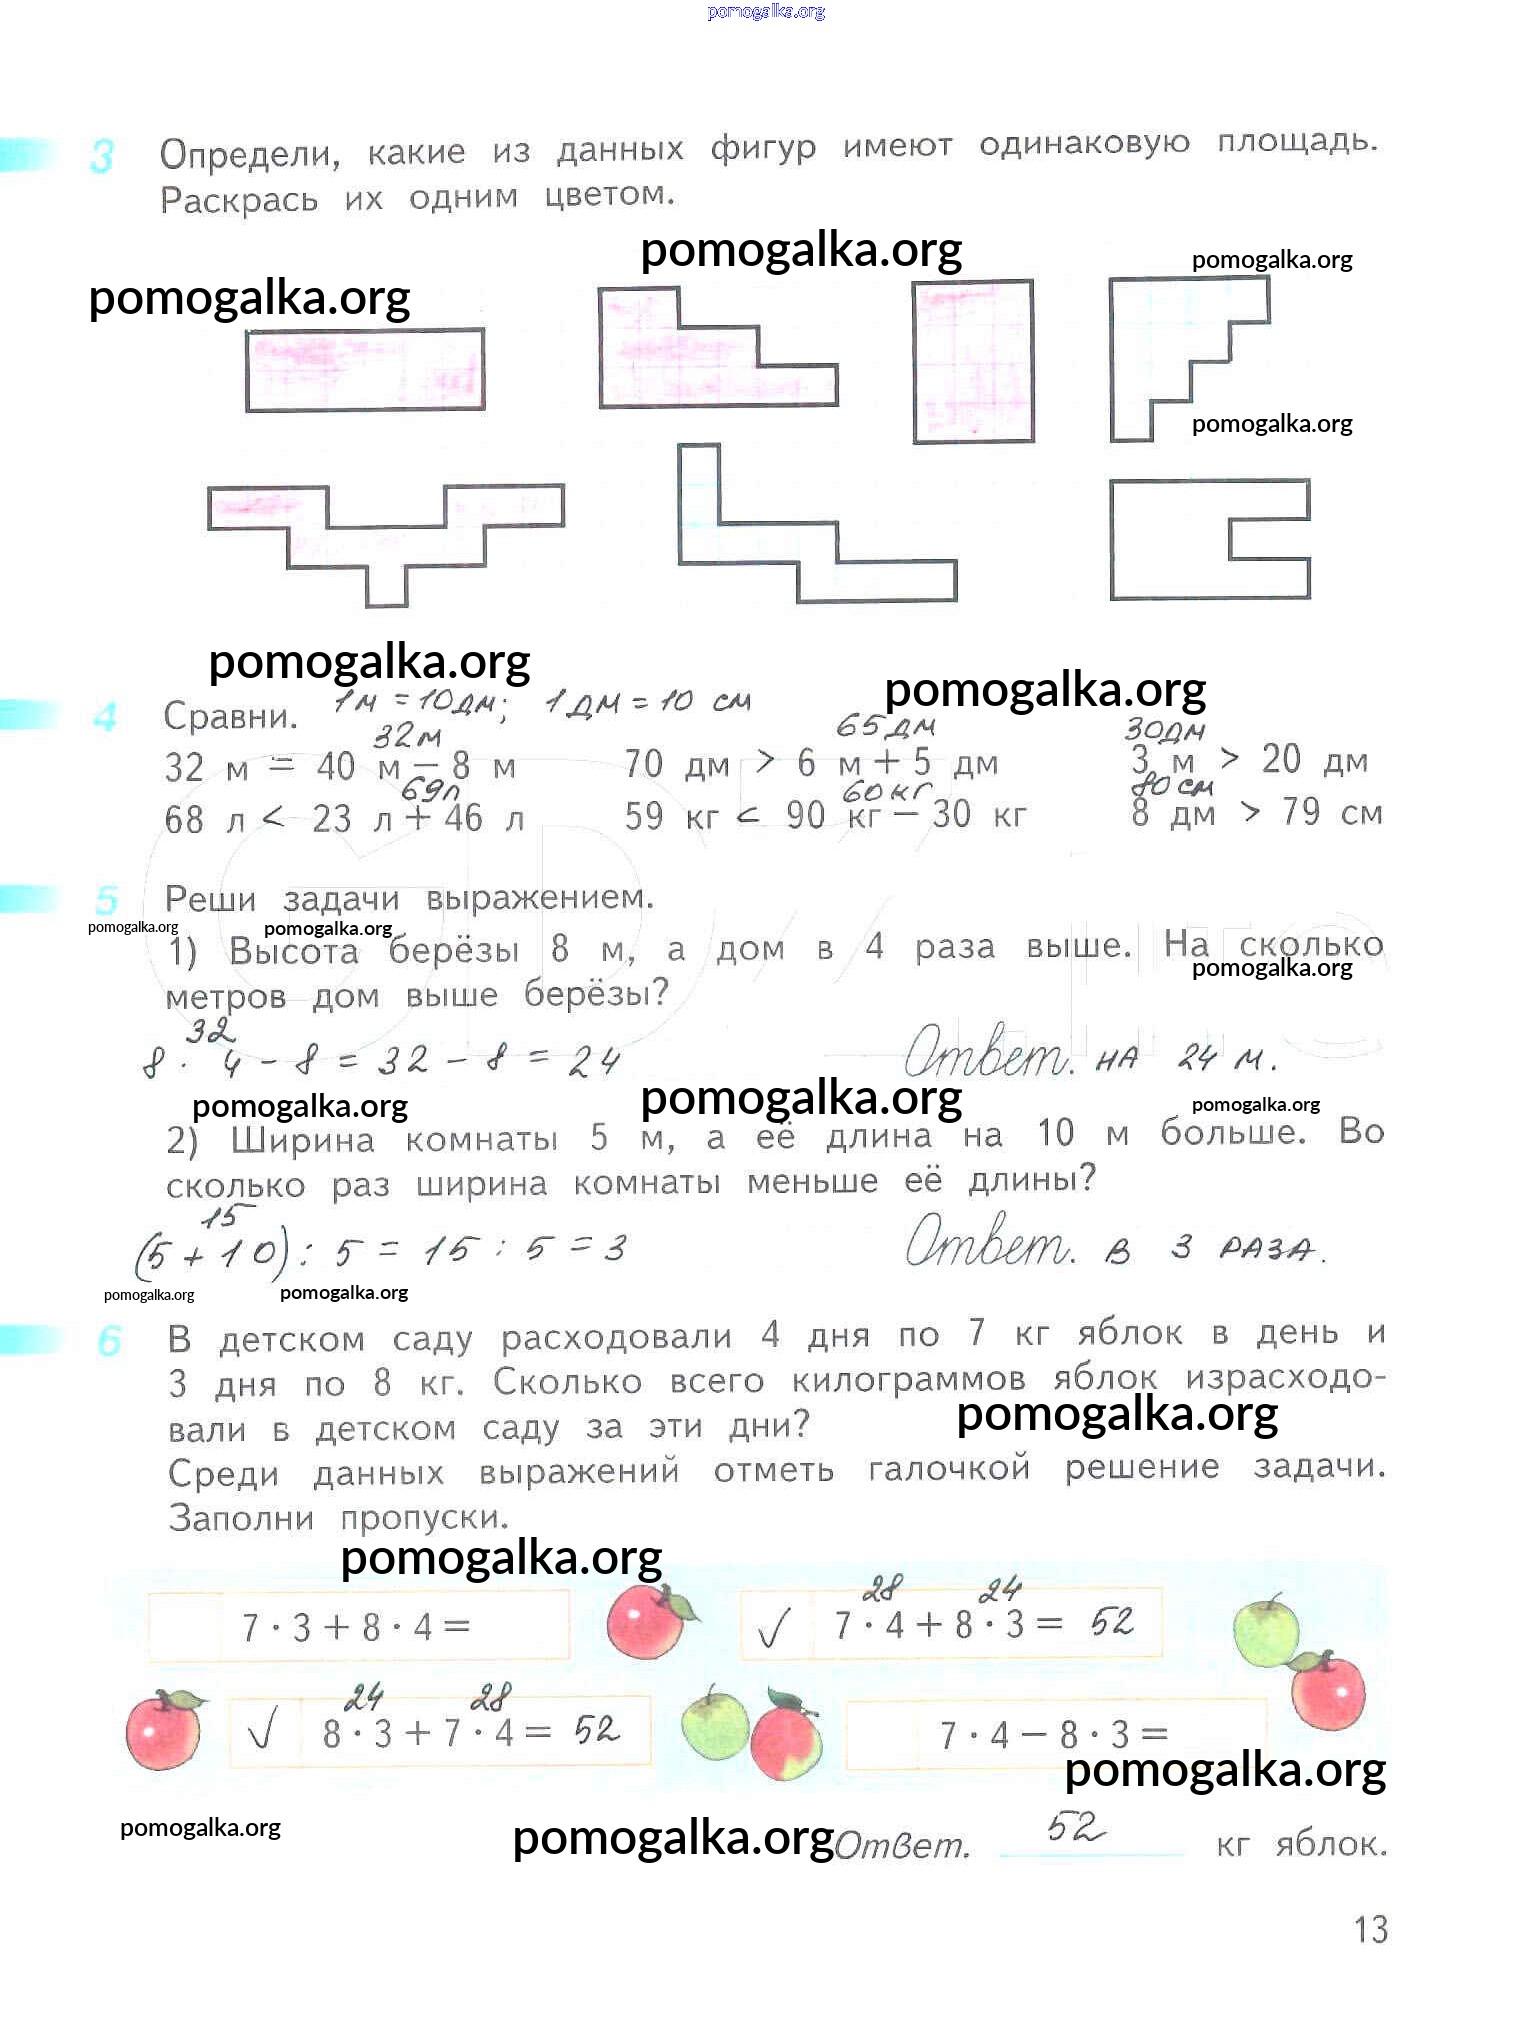 pomogalka.org
3 Определи, какие из данных фигур имеют одинаковую площадь.
Раскрась их одним цветом.
pomogalka.org
pomogalka.org
pomogalka.org
pomogalka.org
pomogalka.org
pomogalka.org
1 м = 10 дм; 1 дм = 10 см
4 Сравни.
32 м 65 дм 30 дм
32 м = 40 м − 8 м 70 дм > 6 м + 5 дм 3 м > 20 дм
69 л 60 кг 80 см
68 л < 23 л + 46 л 59 кг < 90 кг − 30 кг 8 дм > 79 см
5 Реши задачи выражением.
pomogalka.org pomogalka.org
1) Высота берёзы 8 м, а дом в 4 раза выше. На сколько
pomogalka.org
метров дом выше берёзы?
32
8 · 4 − 8 = 32 − 8 = 24 Ответ. на 24 м.
pomogalka.org pomogalka.org pomogalka.org
2) Ширина комнаты 5 м, а её длина на 10 м больше. Во
сколько раз ширина комнаты меньше её длины?
15
(5 + 10) : 5 = 15 : 5 = 3 Ответ. в 3 раза.
pomogalka.org pomogalka.org
6 В детском саду расходовали 4 дня по 7 кг яблок в день и
3 дня по 8 кг. Сколько всего килограммов яблок израсходо-
pomogalka.org
вали в детском саду за эти дни?
Среди данных выражений отметь галочкой решение задачи.
Заполни пропуски.
pomogalka.org
28 24
7 · 3 + 8 · 4 = ✓ 7 · 4 + 8 · 3 = 52
24 28
✓ 8 · 3 + 7 · 4 = 52 7 · 4 − 8 · 3 =
pomogalka.org
pomogalka.org pomogalka.org Ответ. 52 кг яблок.
13